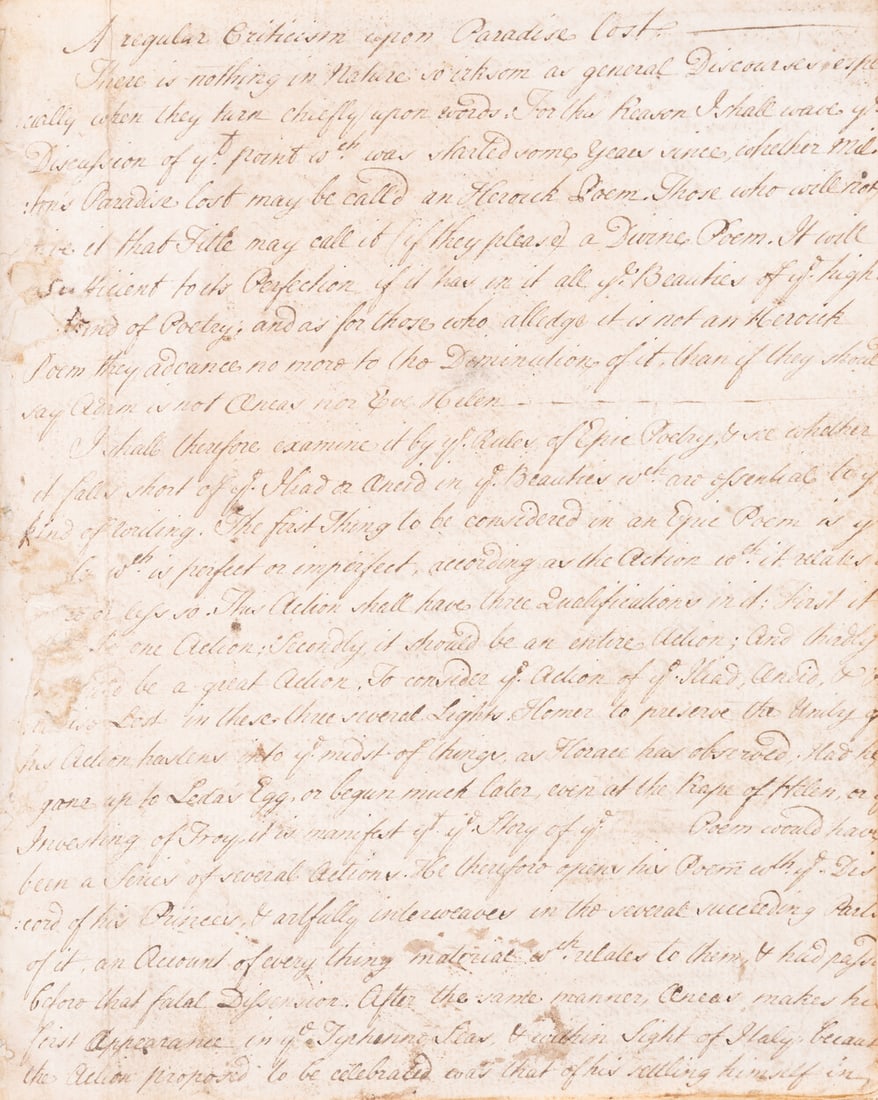 A regular Criticism upon Paradise Lost.
There is nothing in Nature so irksom as general Discourses, espe
cially when they turn chiefly upon words. For this Reason I shall wave ye
Discussion of yt point wch was started some Years since, whether Mil-
:ton's Paradise Lost may be call'd an Heroick Poem. Those who will not
give it that Title may call it (if they please) a Divine Poem. It will
sufficient to its Perfection if it has in it all ye Beauties of ye high
kind of Poetry; and as for those who alledge it is not an Heroick
Poem they advance no more to the Diminution of it, than if they should
say Adam is not Æneas nor Eve Helen
I shall therefore examine it by ye Rules of Epic Poetry, & see whether
it falls short of ye Iliad or Æneid in ye Beauties wch are essential to y
kind of writing. The first Thing to be considered in an Epic Poem is y
wch is perfect or imperfect, according as the Action wch it relates
or less so. This Action shall have three Qualifications in it: First it
be one Action; Secondly it should be an entire Action; And thirdly
be a great Action. To consider ye Action of ye Iliad, Æneid, &
Lost in these three several Lights. Homer to preserve the Unity o
his Action hastens into ye midst of things, as Horace has observed, Had he
gone up to Leda's Egg, or begun much later, even at the Rape of Helen, or y
Investing of Troy, it is manifest yt ye Story of ye Poem would have
been a Series of several Actions. He therefore opens his Poem wth ye Dis
:cord of his Princes, & artfully interweaves in the several succeeding Parts
of it, an Account of every thing material wch relates to them, & had pass
before that fatal Dissension. After the same manner, Æneas makes hi
first Appearance in ye Tyrhenne Seas, & within Sight of Italy, becaus
the Action proposed to be celebrated was that of his settling himself in